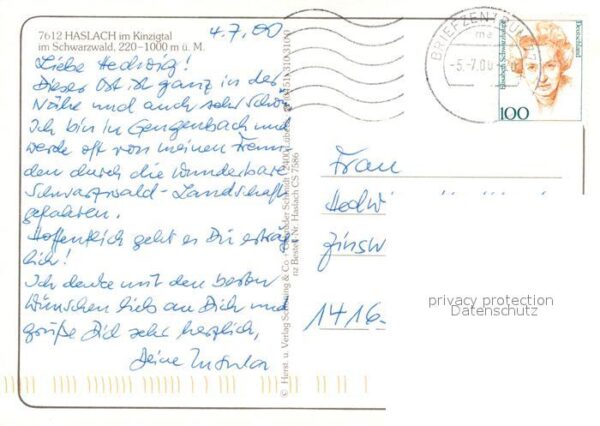 7612 HASLACH im Kinzigtal
im Schwarzwald, 220-1000 m ü. M.
4.7.00
Liebe Hedwig!
Dieser Ort ist ganz in der
Nähe und auch sehr schön
Ich bin in Gengenbach und
werde oft von meinen Freun
den durch die wunderbare
Schwarzwald-Landschaft
gefahren.
Hoffentlich geht es Dir erträg
lich!
Ich denke mit den besten
Wünschen lieb an Dich und
grüße Dich sehr herzlich,
Deine
© Herst. u. Verlag Schöning & Co · Gebrüder Schmidt · 2400 Lübeck
nz Bestell-Nr. Haslach CS 7586
BRIEFZENTRUM
-5.-7.00
Deutschland
100
Frau
Hedwi
Zinsw
1416-
privacy protection
Datenschutz